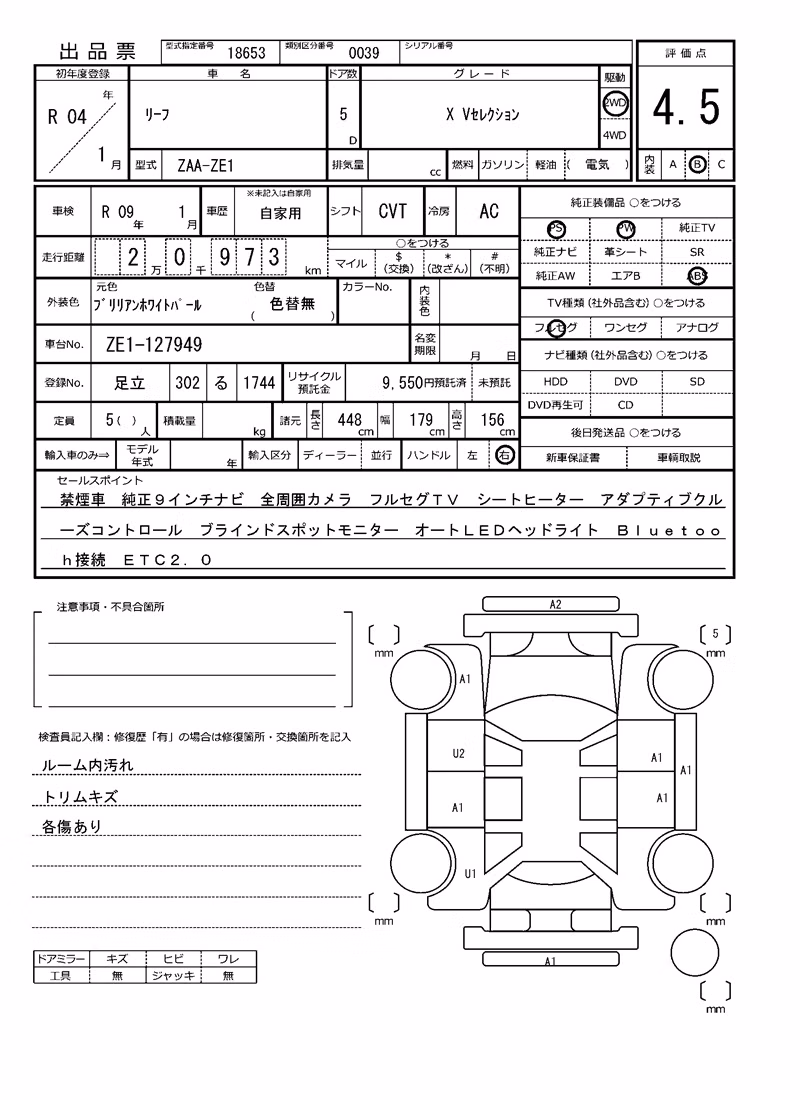 出品票 型式指定番号 18653 類別区分番号 0039 シリアル番号
評価点
4.5
内装 A B C
初年度登録 車名 ドア数 グレード 駆動
R 04 年 1 月 リーフ 5 D X Vセレクション 2WD
4WD
型式 ZAA-ZE1 排気量 cc 燃料 ガソリン 軽油 ( 電気 )
車検 R 09 年 1 月 車歴 ※未記入は自家用 自家用 シフト CVT 冷房 AC
走行距離 2 万 0 千 9 7 3 km
○をつける
マイル $ (交換) * (改ざん) # (不明)
外装色 元色 ブリリアンホワイトパール 色替 色替無 ( ) カラーNo. 内装色
車台No. ZE1-127949 名変期限 月 日
登録No. 足立 302 る 1744 リサイクル預託金 9,550円預託済 未預託
定員 5( ) 人 積載量 kg 諸元 長さ 448 cm 幅 179 cm 高さ 156 cm
輸入車のみ⇒ モデル年式 年 輸入区分 ディーラー 並行 ハンドル 左 右
純正装備品 ○をつける
PS PW 純正TV
純正ナビ 革シート SR
純正AW エアB ABS
TV種類(社外品含む) ○をつける
フルセグ ワンセグ アナログ
ナビ種類(社外品含む) ○をつける
HDD DVD SD
DVD再生可 CD
後日発送品 ○をつける
新車保証書 車輌取説
セールスポイント
禁煙車 純正9インチナビ 全周囲カメラ フルセグTV シートヒーター アダプティブクル
ーズコントロール ブラインドスポットモニター オートLEDヘッドライト Bluetoo
h接続 ETC2.0
注意事項・不具合箇所
検査員記入欄：修復歴「有」の場合は修復箇所・交換箇所を記入
ルーム内汚れ
トリムキズ
各傷あり
ドアミラー キズ ヒビ ワレ
工具 無 ジャッキ 無
A2
mm 5 mm
A1
U2 A1 A1
A1 A1
U1
mm mm
A1
mm